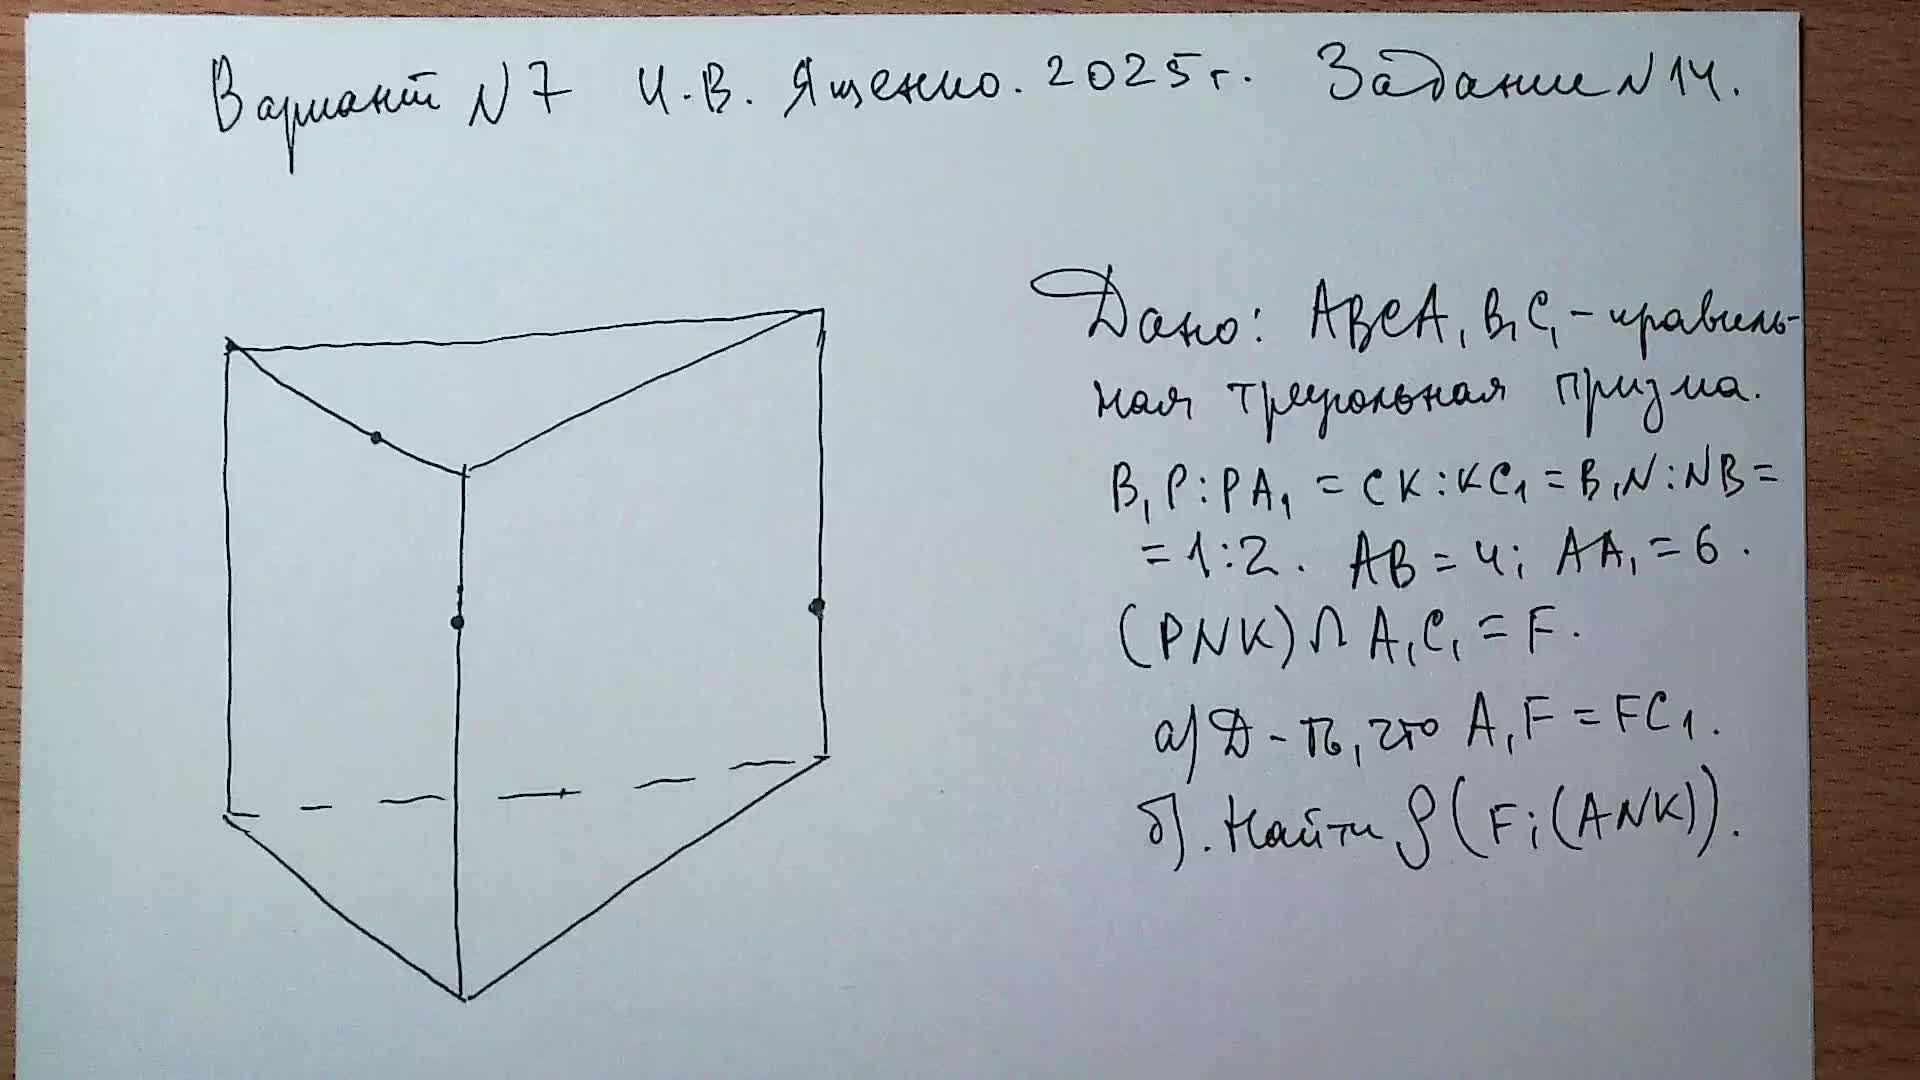 Вариант №7 И.В. Ященко. 2025г. Задание №14.
Дано: ABCA₁B₁C₁ - правиль-
ная треугольная призма.
B₁P:PA₁ = CK:KC₁ = B₁N:NB =
= 1:2. AB = 4; AA₁ = 6.
(PNK) ∩ A₁C₁ = F.
а) Д-ть, что A₁F = FC₁.
б). Найти ρ(F; (ANK)).